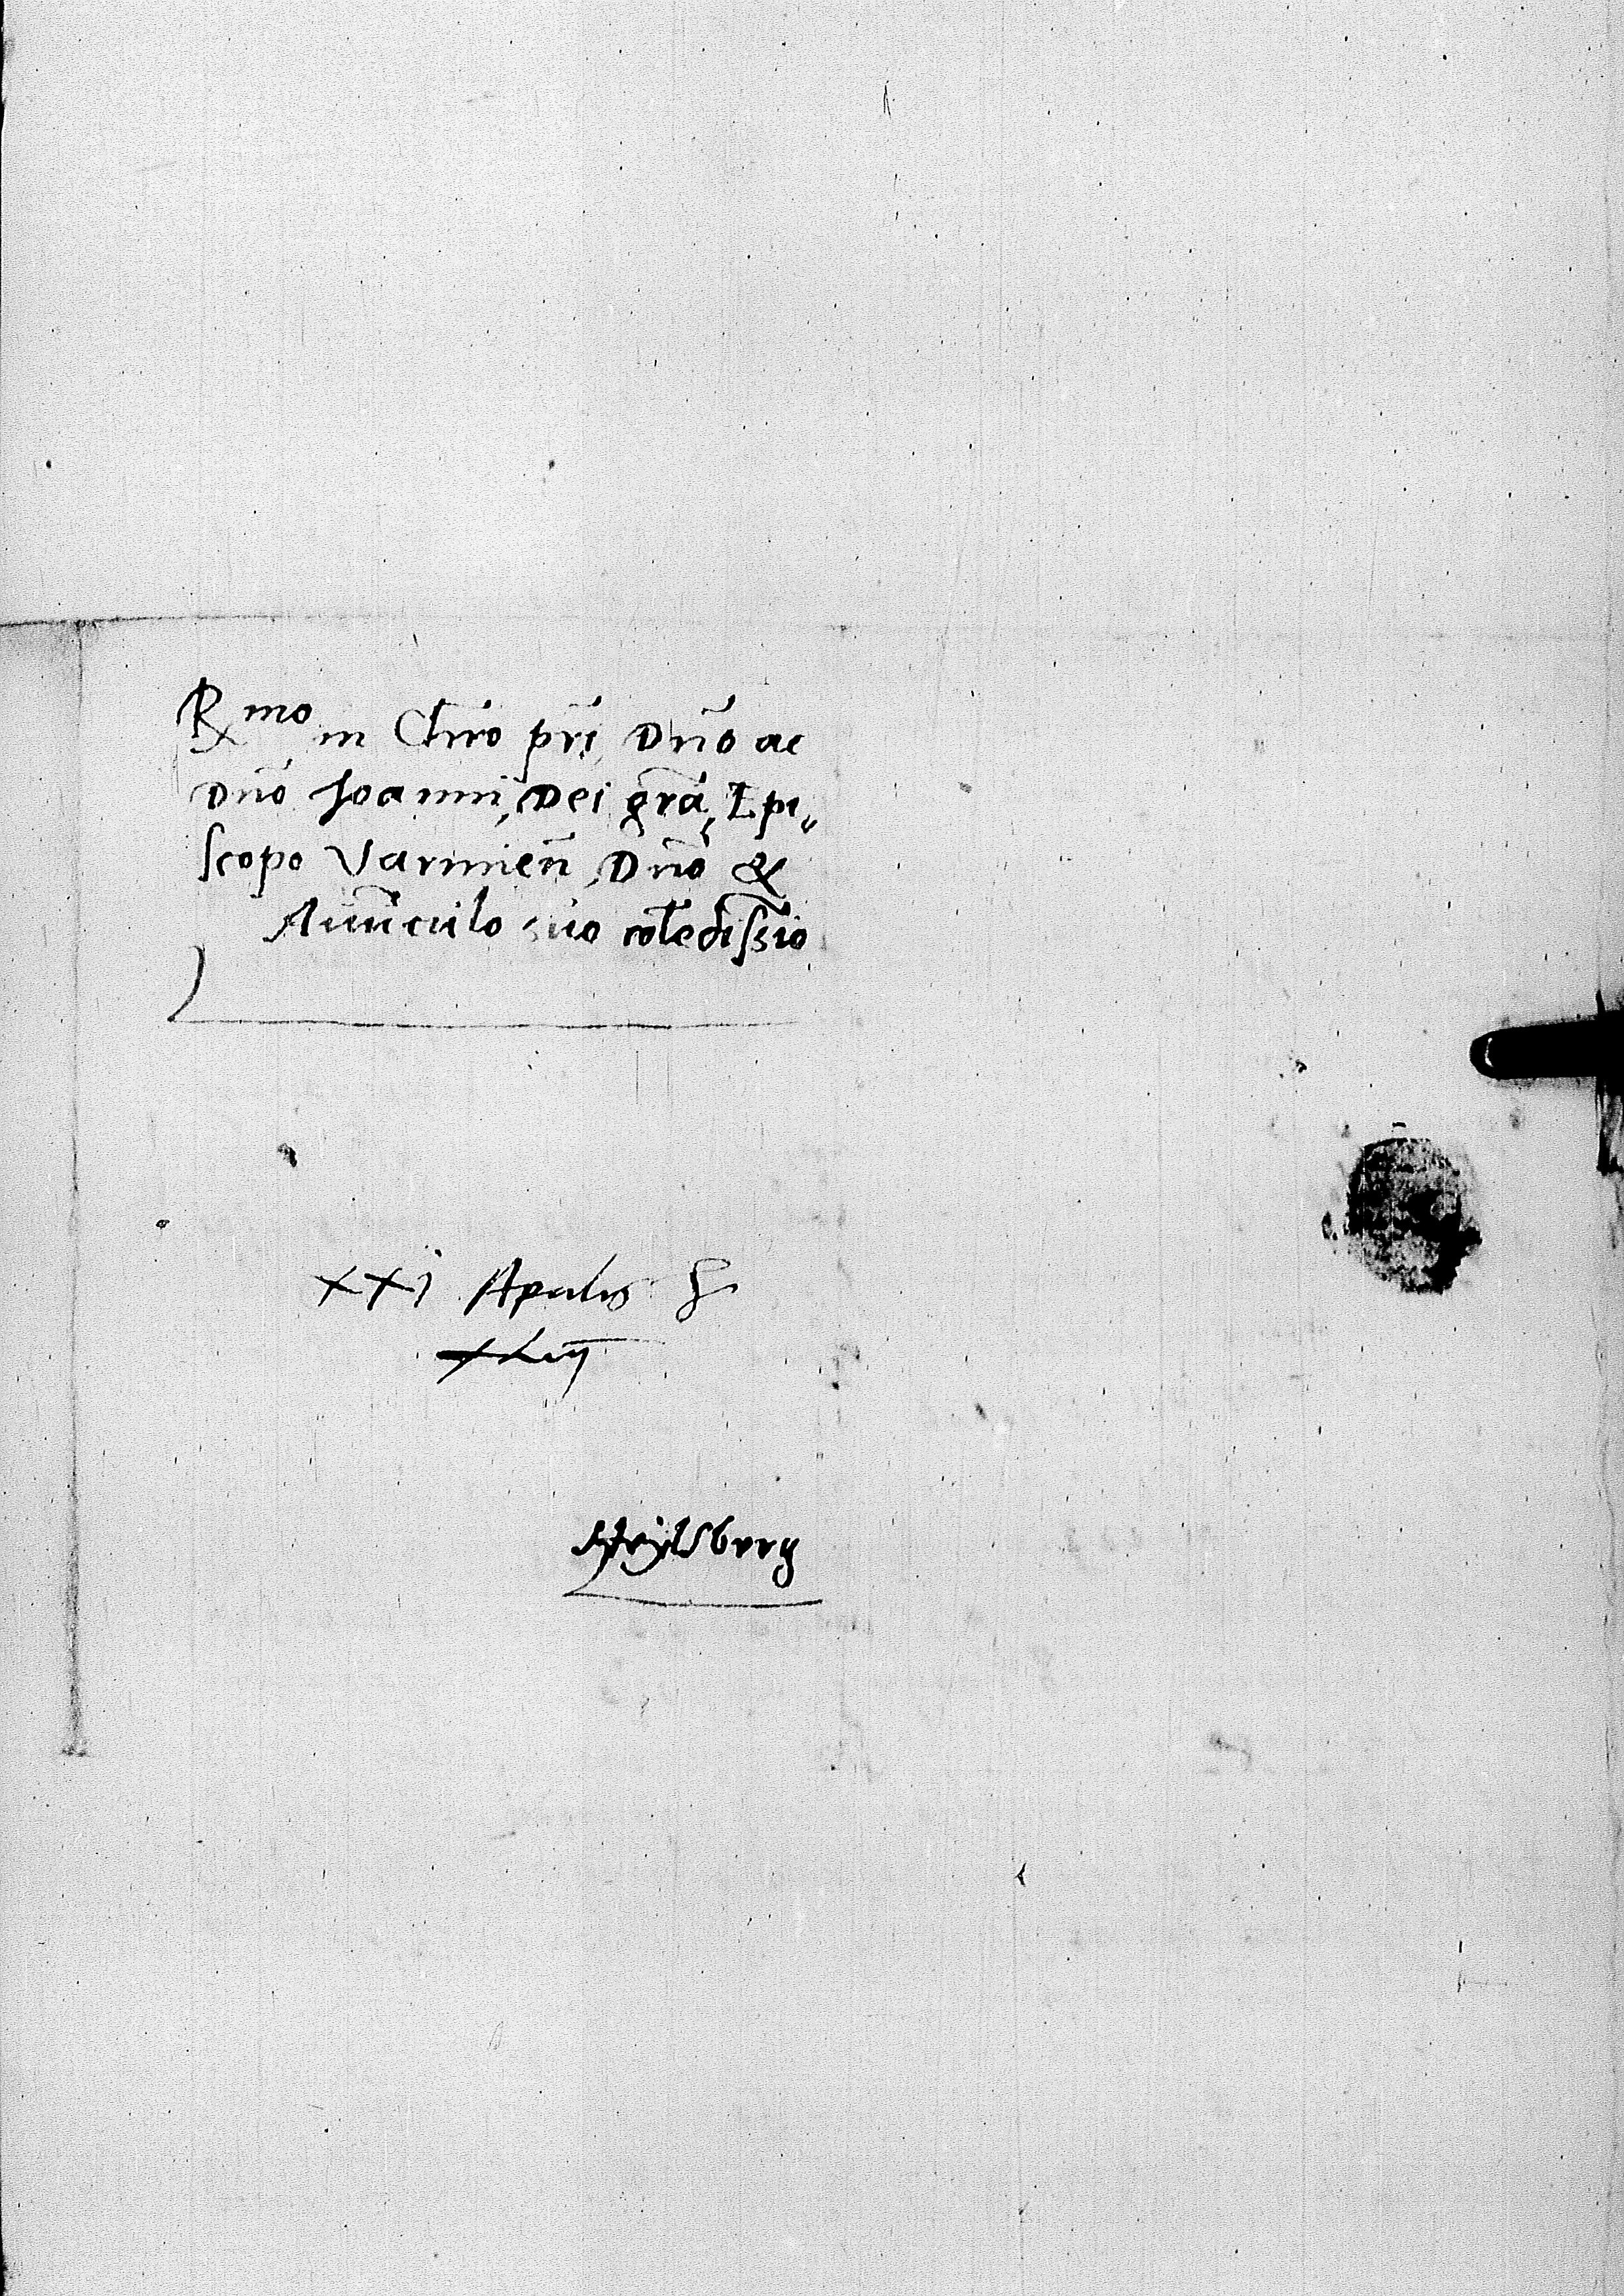 Rmo in Chro pri Dno ac
Dno Joanni, Dei gra, Epi„
scopo Varmien, Dno &
Auunculo suo colēdissio
xxi Aprilis
xlii
Heylsberg